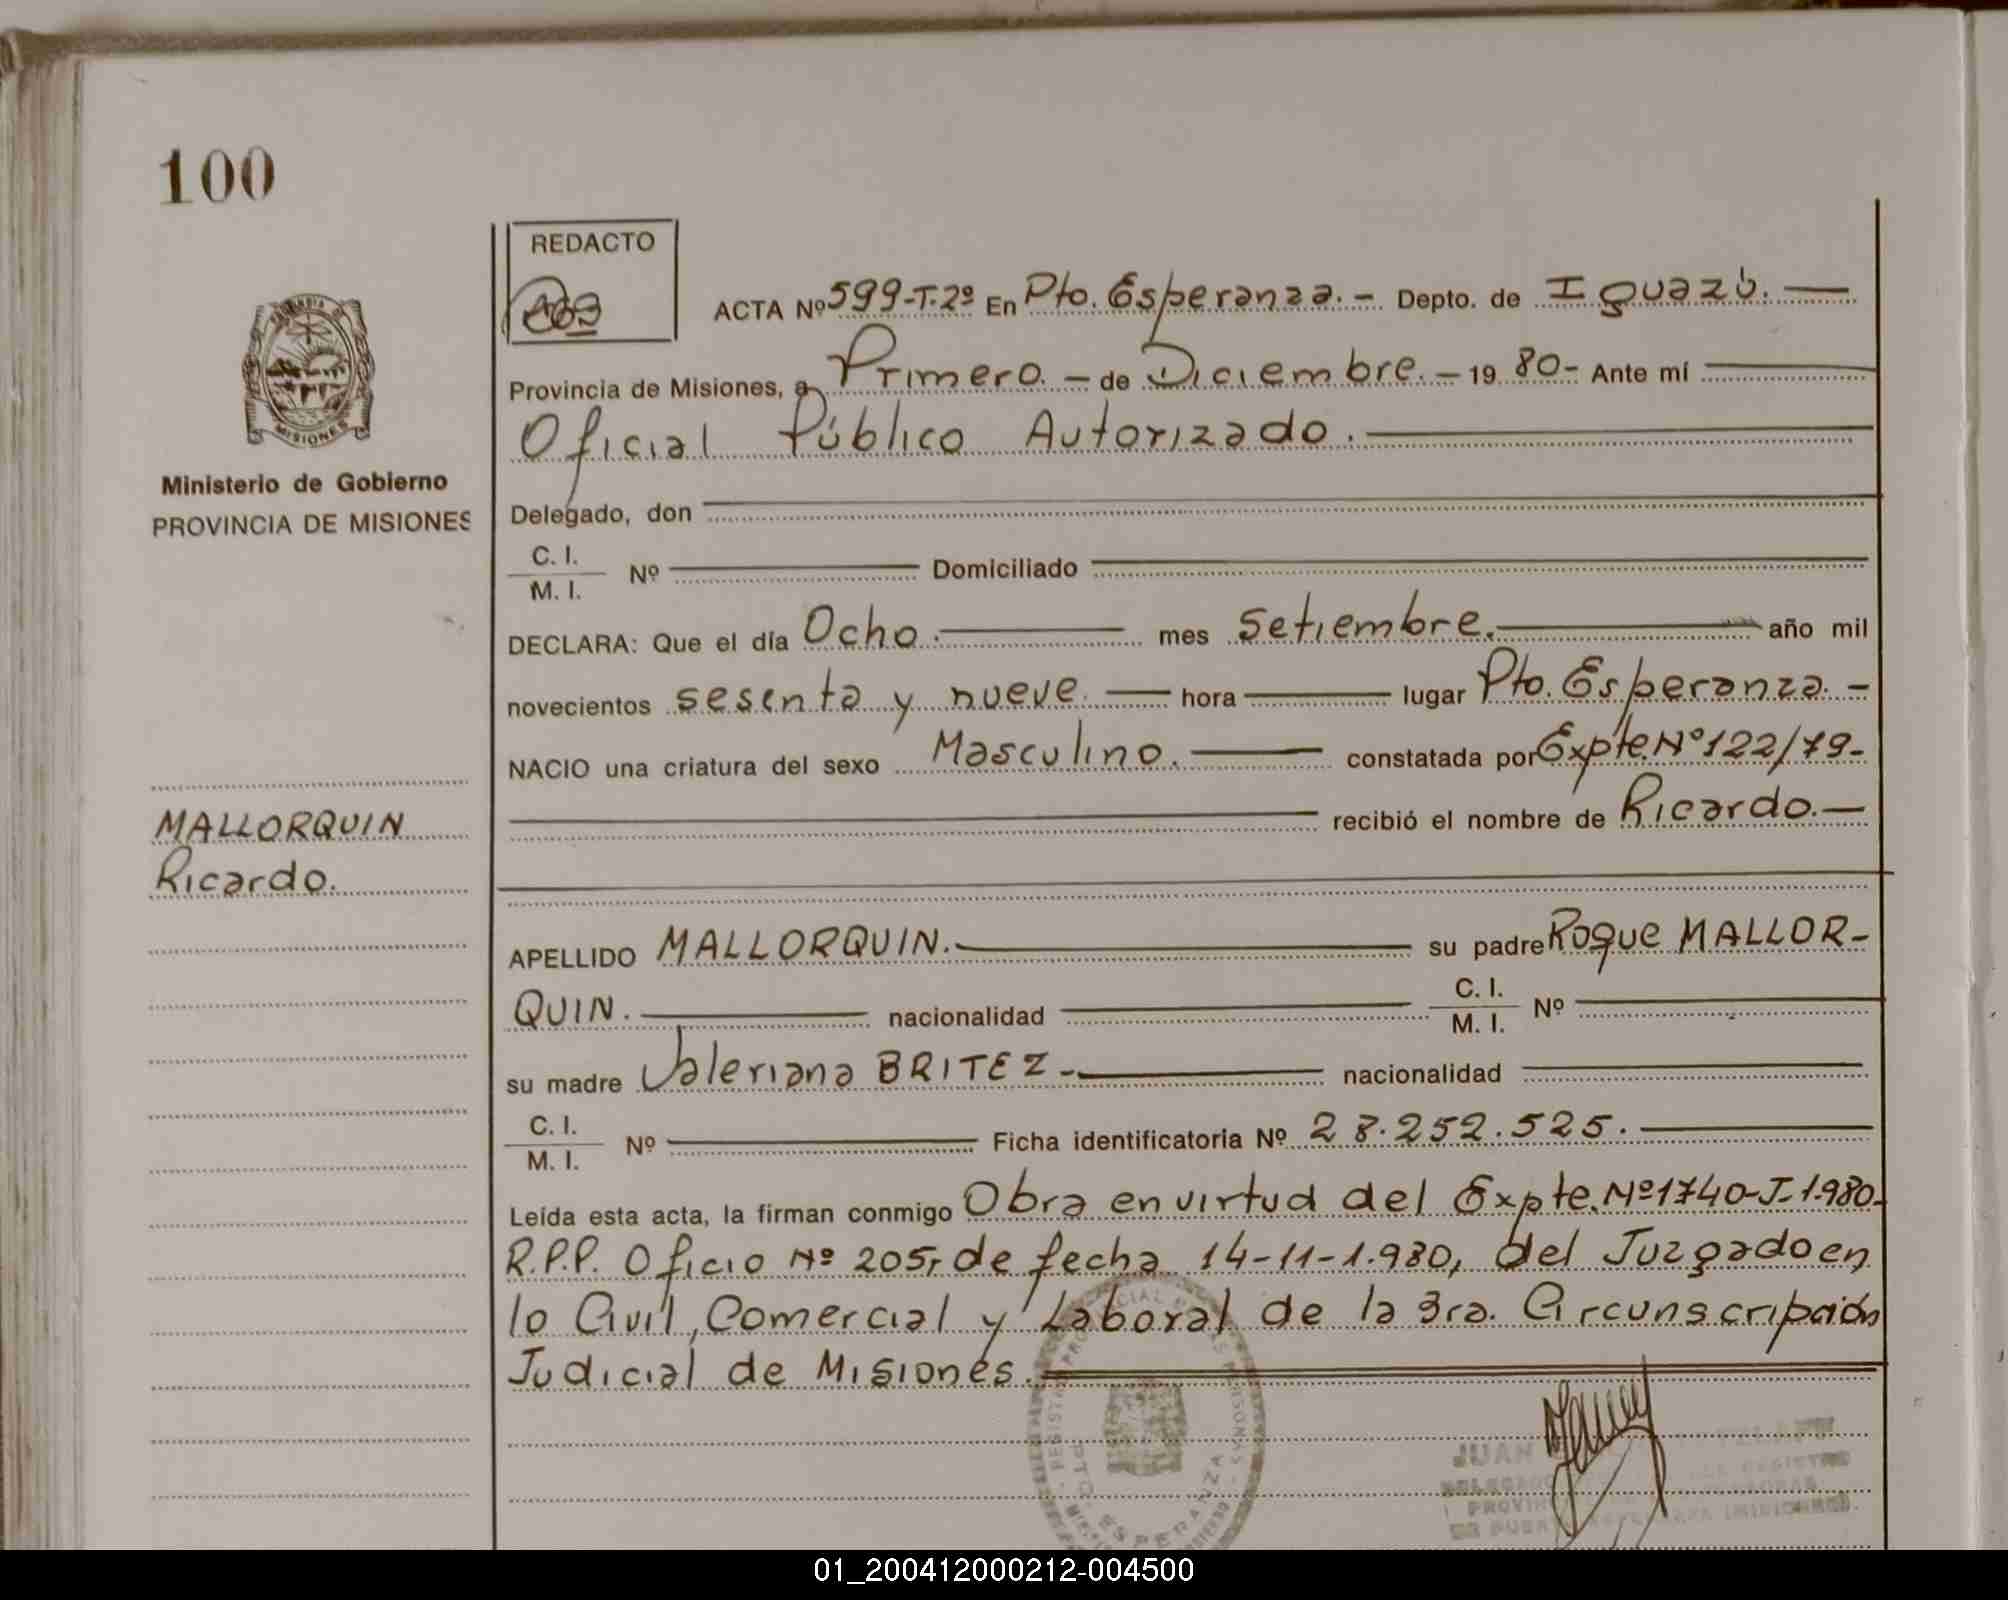 100
REDACTO
ACTA Nº 599-T.2º En Pto. Esperanza.- Depto. de Iguazú.
Provincia de Misiones, a Primero.- de Diciembre.- 19 80- Ante mí
Oficial Público Autorizado.
MISIONES
Ministerio de Gobierno
PROVINCIA DE MISIONES
Delegado, don
C. I.
M. I.
Nº Domiciliado
DECLARA: Que el día Ocho. mes Setiembre. año mil
novecientos sesenta y nueve. hora lugar Pto. Esperanza.-
NACIO una criatura del sexo Masculino. constatada por Expte.Nº122/79-
recibió el nombre de Ricardo.-
MALLORQUIN
Ricardo.
APELLIDO MALLORQUIN. su padre Roque MALLOR-
QUIN. nacionalidad C. I.
M. I. Nº
su madre Valeriana BRITEZ- nacionalidad
C. I.
M. I.
Nº Ficha identificatoria Nº 28.252.525.
Leída esta acta, la firman conmigo Obra en virtud del Expte.Nº1740-J-1.980-
R.P.P. Oficio Nº 205, de fecha 14-11-1.980, del Juzgado en
lo Civil, Comercial y Laboral de la 3ra. Circunscripción
Judicial de Misiones.
JUAN
ESPERANZA
01_200412000212-004500